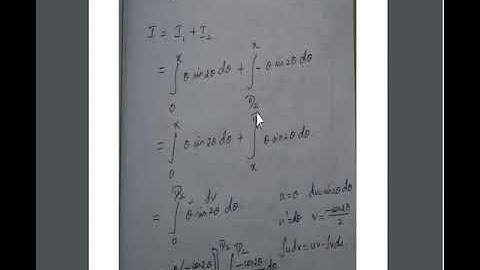 I = I₁ + I₂
= ∫₀ˣ θ sin2θ dθ + ∫_{π/2}ˣ -θ sin2θ dθ
= ∫₀ˣ θ sin2θ dθ + ∫ₓ^{π/2} θ sin2θ dθ
= ∫₀^{π/2} θ sin2θ dθ dv u=θ dv=sin2θ dθ
u'=dθ v= -cos2θ/2
∫u dv = uv - ∫v du